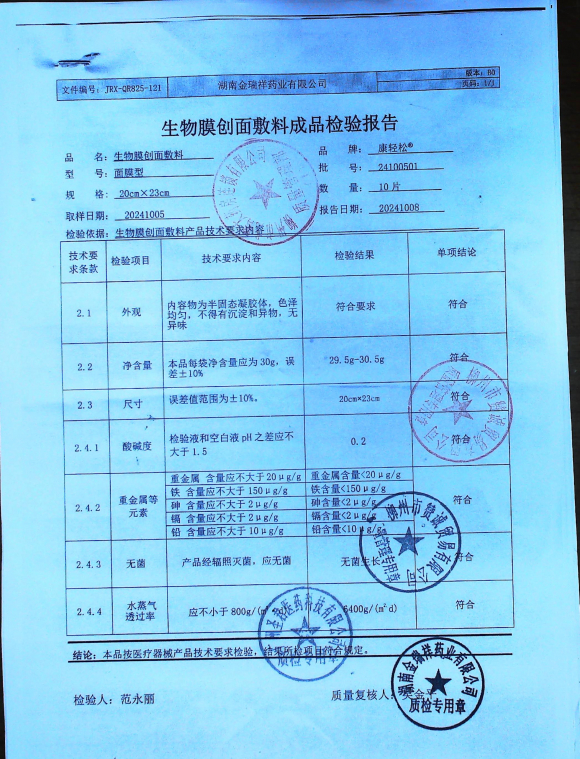 文件编号：JRX-QR825-121 湖南金瑞祥药业有限公司 版本：B0
页码：1/1
生物膜创面敷料成品检验报告
品 名：生物膜创面敷料 品 牌：康轻松®
型 号：面膜型 批 号：24100501
规 格：20cm×23cm 数 量：10片
取样日期：20241005 报告日期：20241008
检验依据：生物膜创面敷料产品技术要求内容
技术要求条款 检验项目 技术要求内容 检验结果 单项结论
2.1 外观 内容物为半固态凝胶体，色泽均匀，不得有沉淀和异物，无异味 符合要求 符合
2.2 净含量 本品每袋净含量应为30g，误差±10% 29.5g-30.5g 符合
2.3 尺寸 误差值范围为±10%。 20cm×23cm 符合
2.4.1 酸碱度 检验液和空白液pH之差应不大于1.5 0.2 符合
2.4.2 重金属等元素 重金属 含量应不大于20μg/g 重金属含量<20μg/g 符合
铁 含量应不大于150μg/g 铁含量<150μg/g
砷 含量应不大于2μg/g 砷含量<2μg/g
镉 含量应不大于2μg/g 镉含量<2μg/g
铅 含量应不大于10μg/g 铅含量<10μg/g
2.4.3 无菌 产品经辐照灭菌，应无菌 无菌生长 符合
2.4.4 水蒸气透过率 应不小于800g/(m 6400g/(m²d) 符合
结论：本品按医疗器械产品技术要求检验，结果所检项目符合规定。
检验人：范永丽 质量复核人：
柳州市赞诚贸易有限公司
医药科技有限公司
质检专用章
湖南金瑞祥药业有限公司
质检专用章